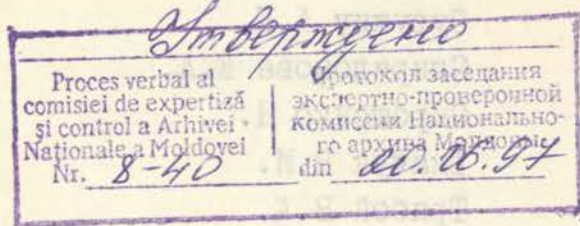 Утверждено
Proces verbal al
comisiei de expertiză
și control a Arhivei
Naționale a Moldovei
Nr. 8-40
Протокол заседания
экспертно-проверочной
комиссии Национально-
го архива Молдовы
din 20.06.97